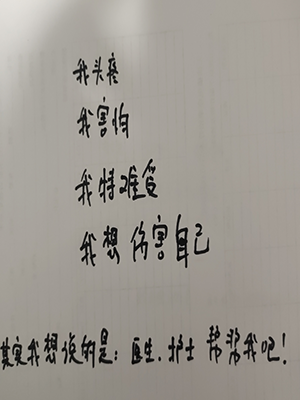 我头疼
我害怕
我特难受
我想伤害自己
其实我想说的是：医生、护士帮帮我吧！